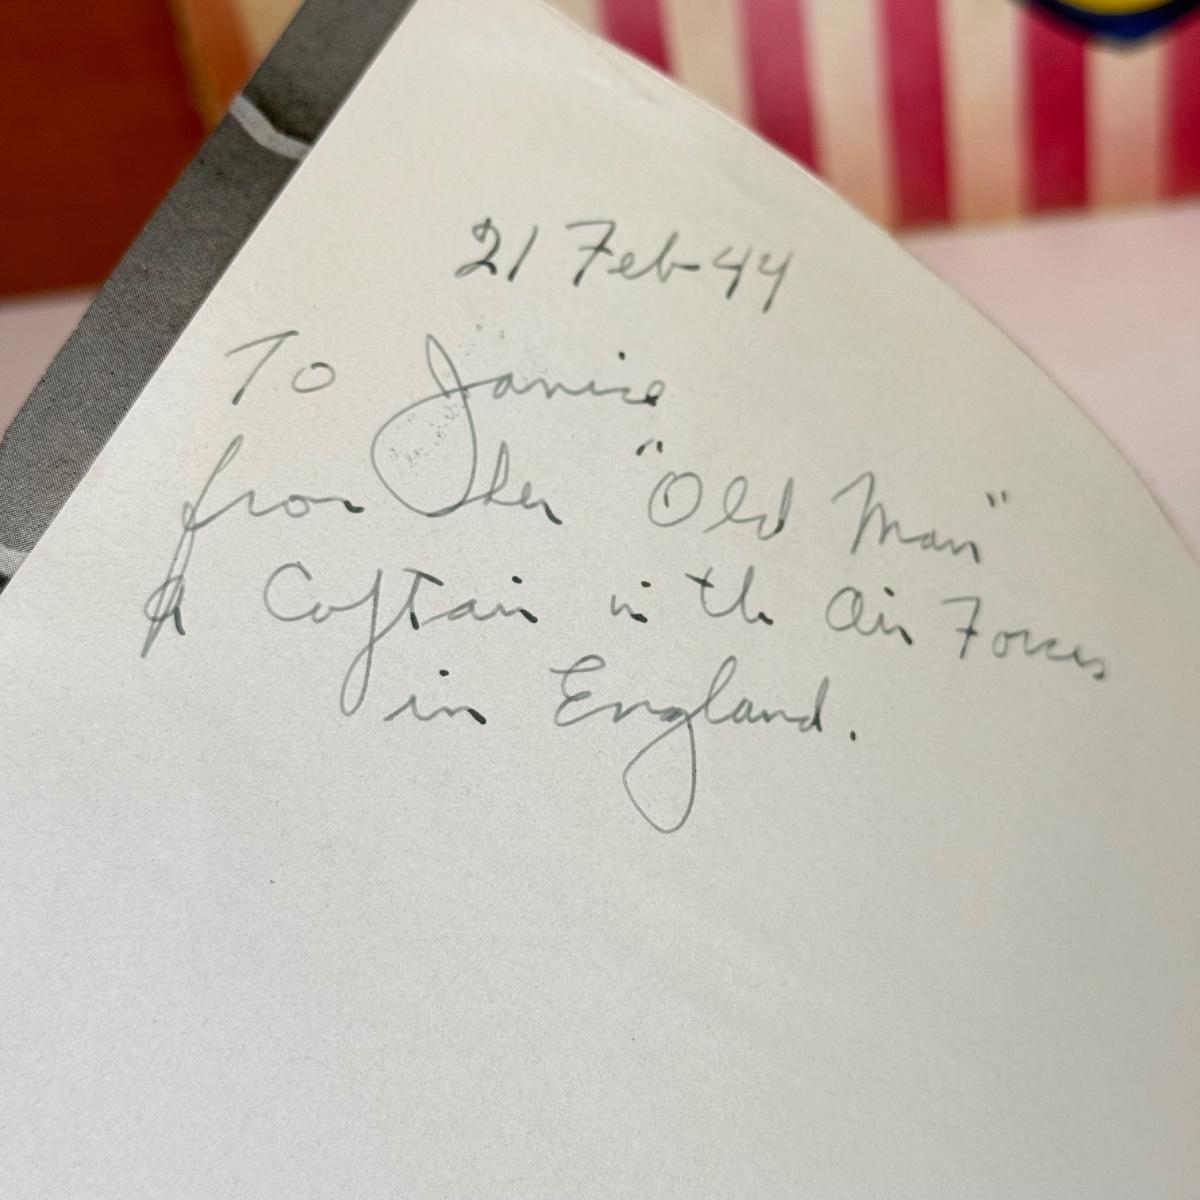 21 Feb 44
To Janice
from her "Old Man"
A Captain in the Air Forces
in England.